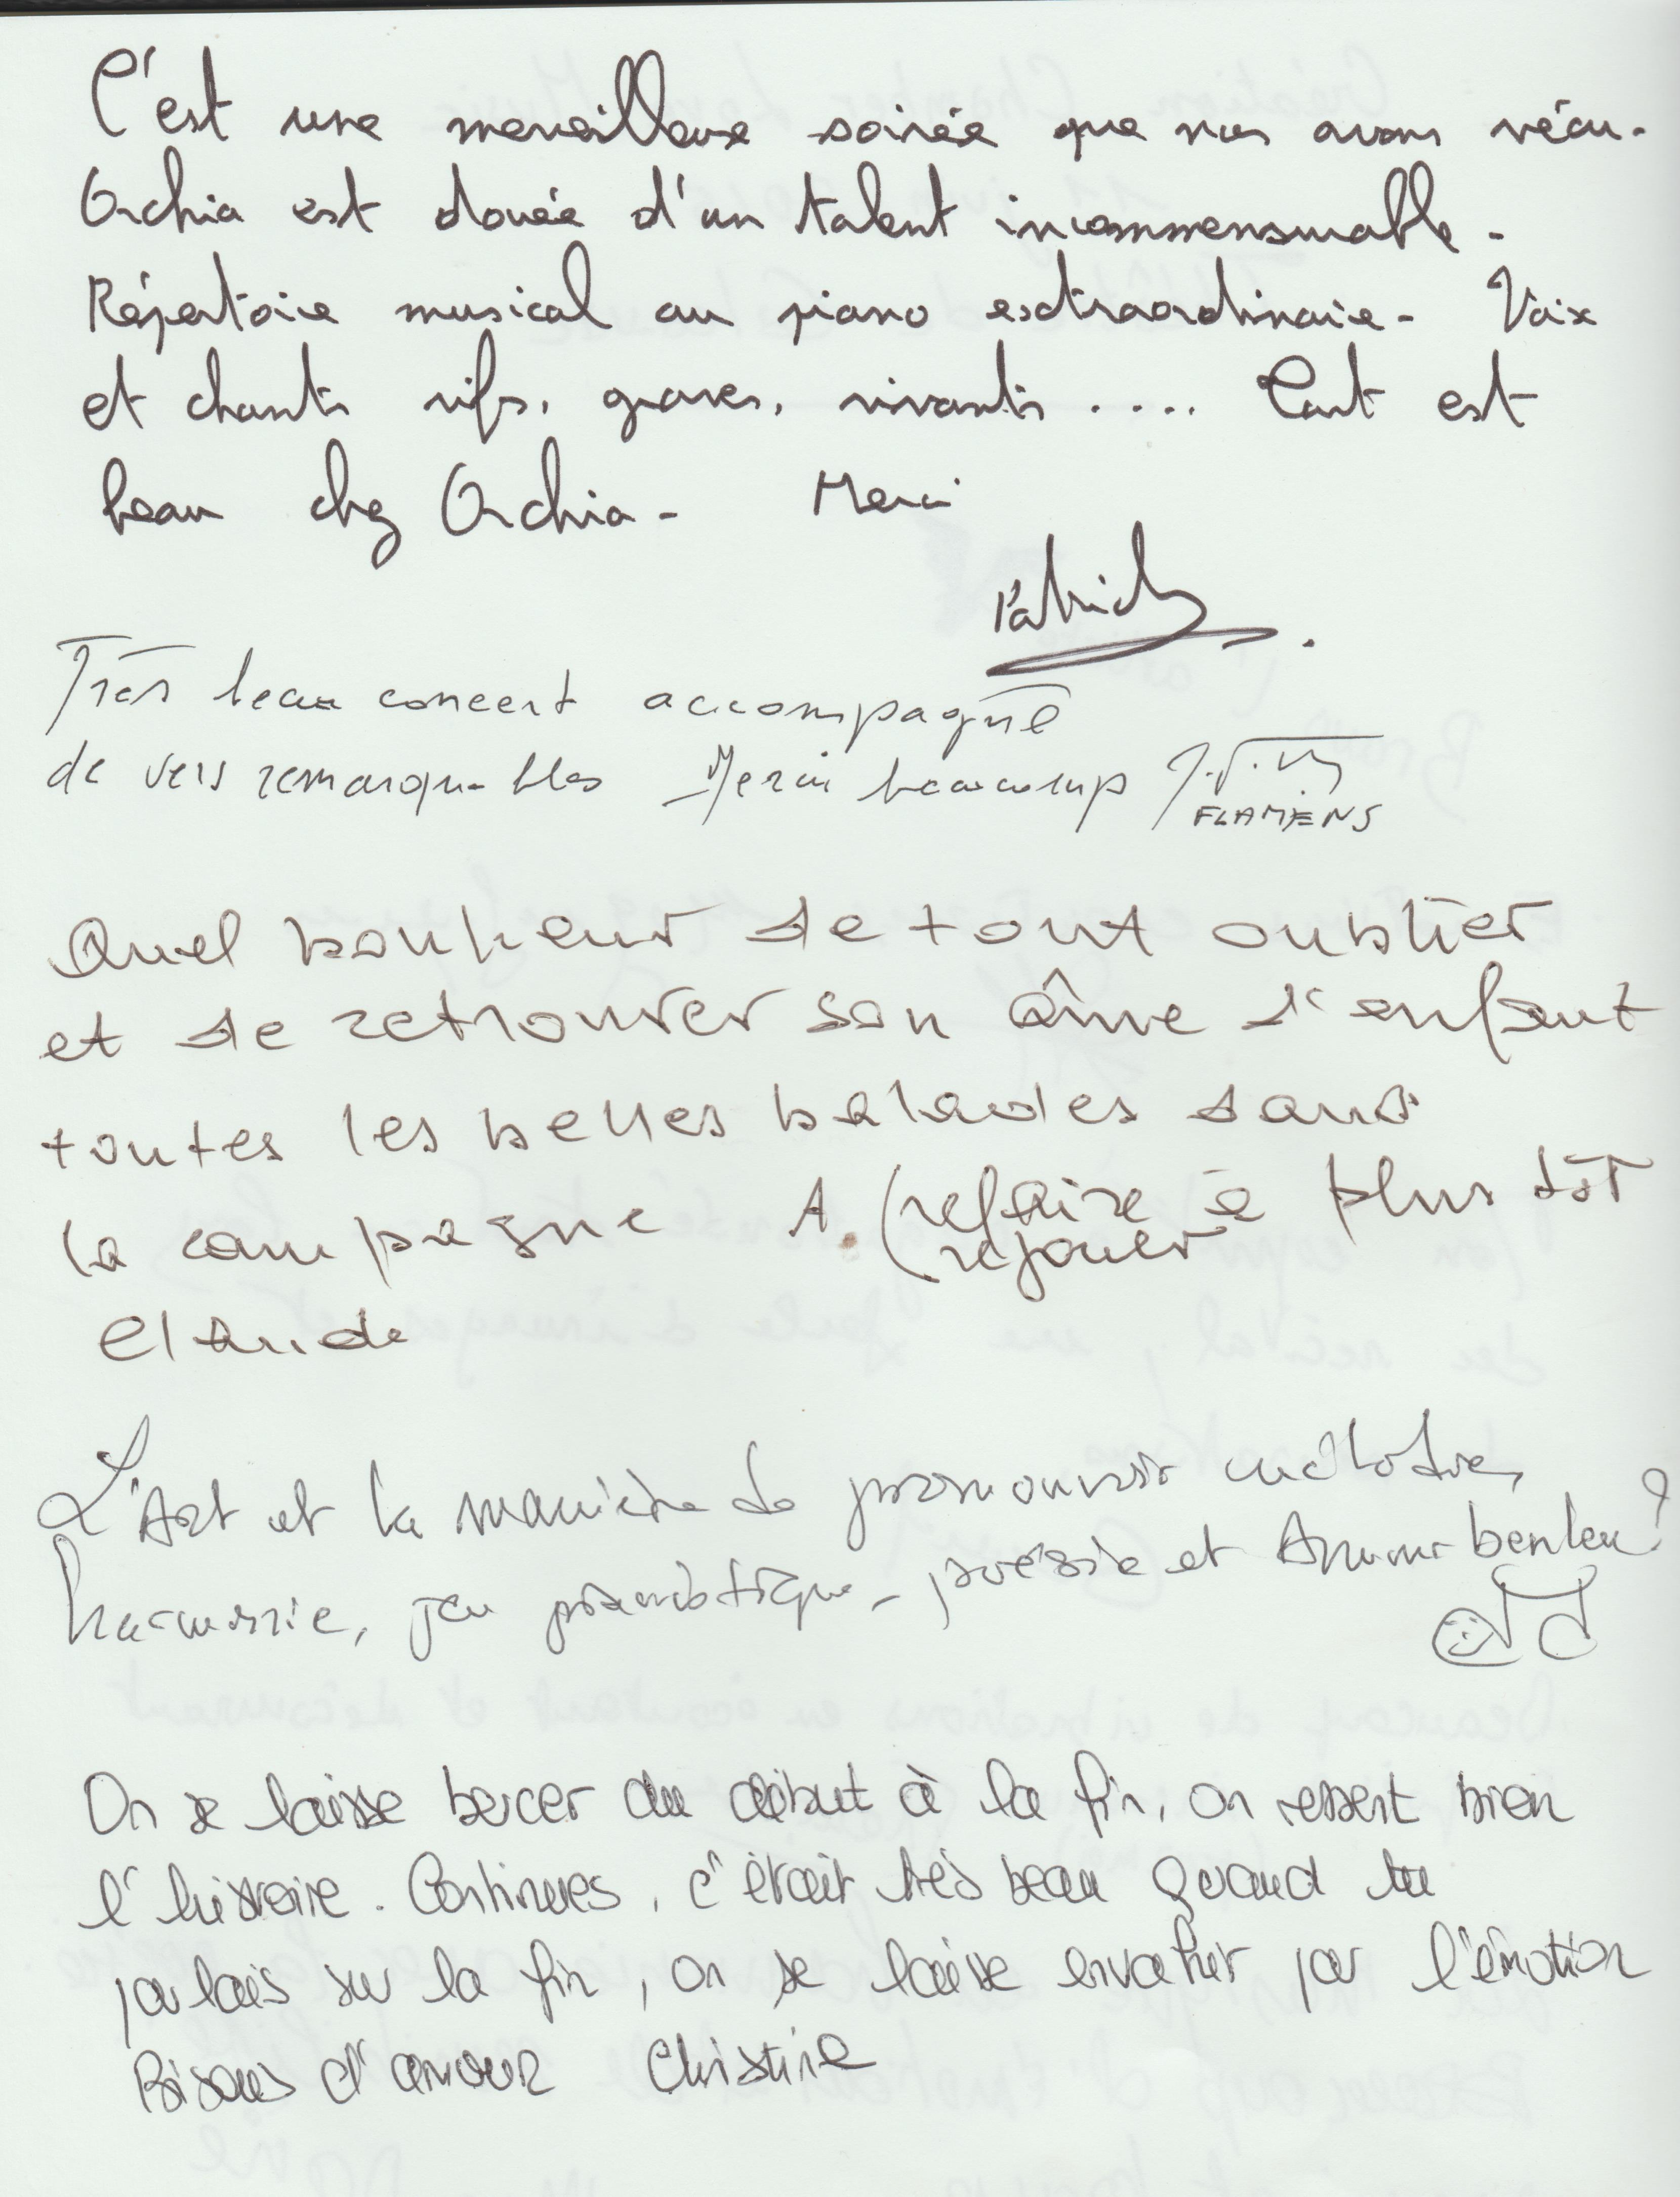 C'est une merveilleuse soirée que nous avons vécu.
Orchia est douée d'un talent incommensurable -
Répertoire musical au piano extraordinaire - Voix
et chants vifs, graves, vivants .... Tout est
beau chez Orchia - Merci
Patrick
Très beau concert accompagné
de vers remarquables Merci beaucoup
FLAMENS
Quel bonheur de tout oublier
et de retrouver son âme d'enfant
toutes les belles balades dans
la campagne A (refaire à plus tôt
rejouer
Claude
L'Art et la manière de promouvoir mélodie,
harmonie, jeu pianistique, poésie et Amour
On se laisse bercer du début à la fin, on ressent bien
l'histoire. Continues, c'était très beau quand tu
parlais sur la fin, on se laisse envahir par l'émotion
Bisous d'amour Christine